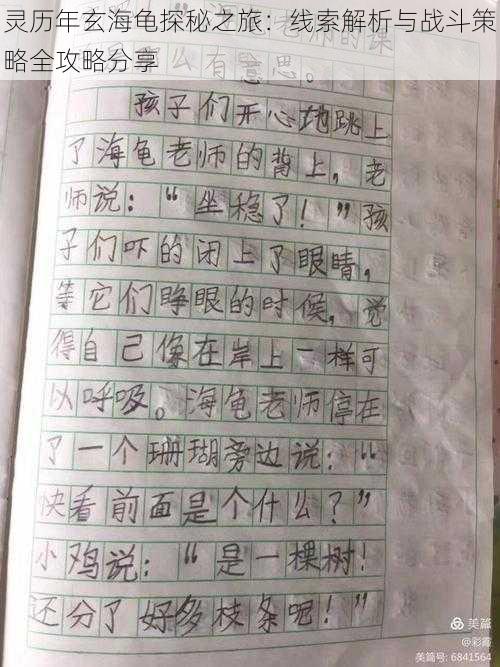 灵历年玄海龟探秘之旅：线索解析与战斗策
略全攻略分享
么有意思。
孩子们开心地跳上
了海龟老师的背上，老
师说：“坐稳了！”孩
子们吓的闭上了眼睛，
等它们睁眼的时候，觉
得自己像在岸上一样可
以呼吸。海龟老师停在
了一个珊瑚旁边说：“
快看前面是个什么？”
小鸡说：“是一棵树！
还分了好多枝条呢！”
美篇
@彩霞
美篇号: 6841564